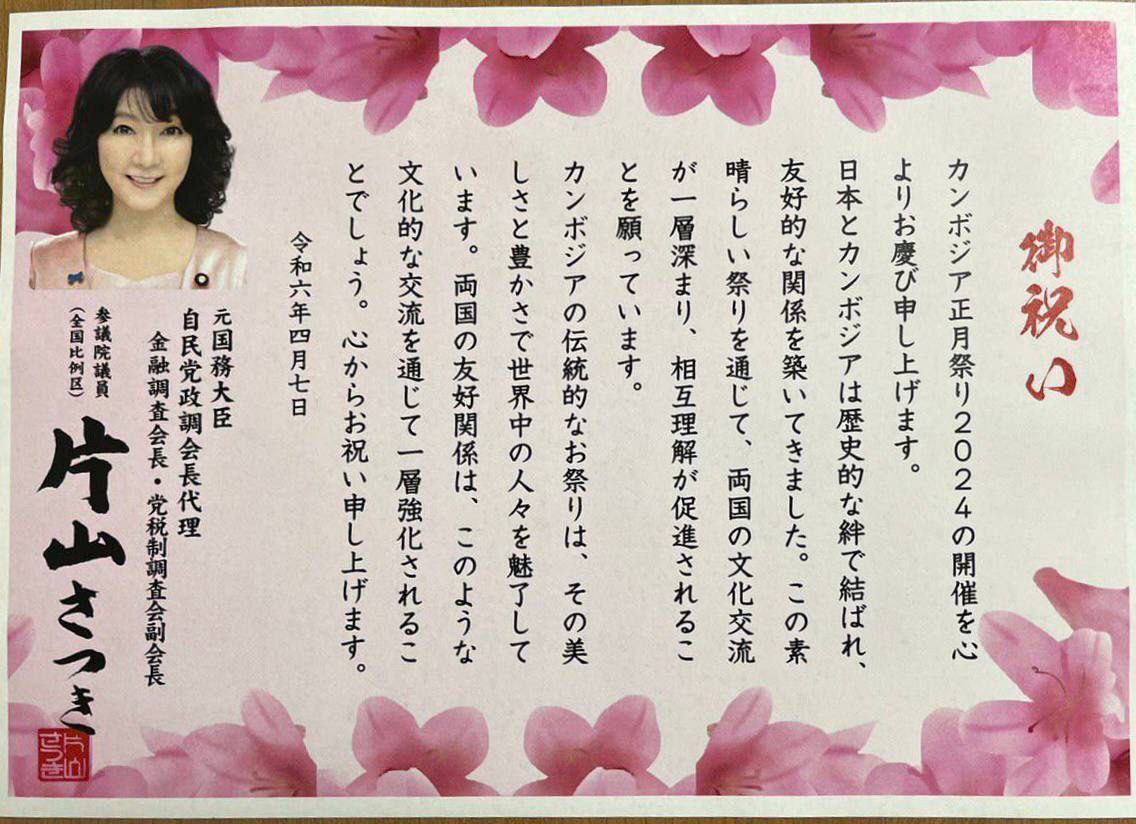 御祝い
カンボジア正月祭り2024の開催を心
よりお慶び申し上げます。
日本とカンボジアは歴史的な絆で結ばれ、
友好的な関係を築いてきました。この素
晴らしい祭りを通じて、両国の文化交流
が一層深まり、相互理解が促進されるこ
とを願っています。
カンボジアの伝統的なお祭りは、その美
しさと豊かさで世界中の人々を魅了して
います。両国の友好関係は、このような
文化的な交流を通じて一層強化されるこ
とでしょう。心からお祝い申し上げます。
令和六年四月七日
元国務大臣
自民党政調会長代理
金融調査会長・党税制調査会副会長
参議院議員
(全国比例区)
片山さつき
片山
さつき